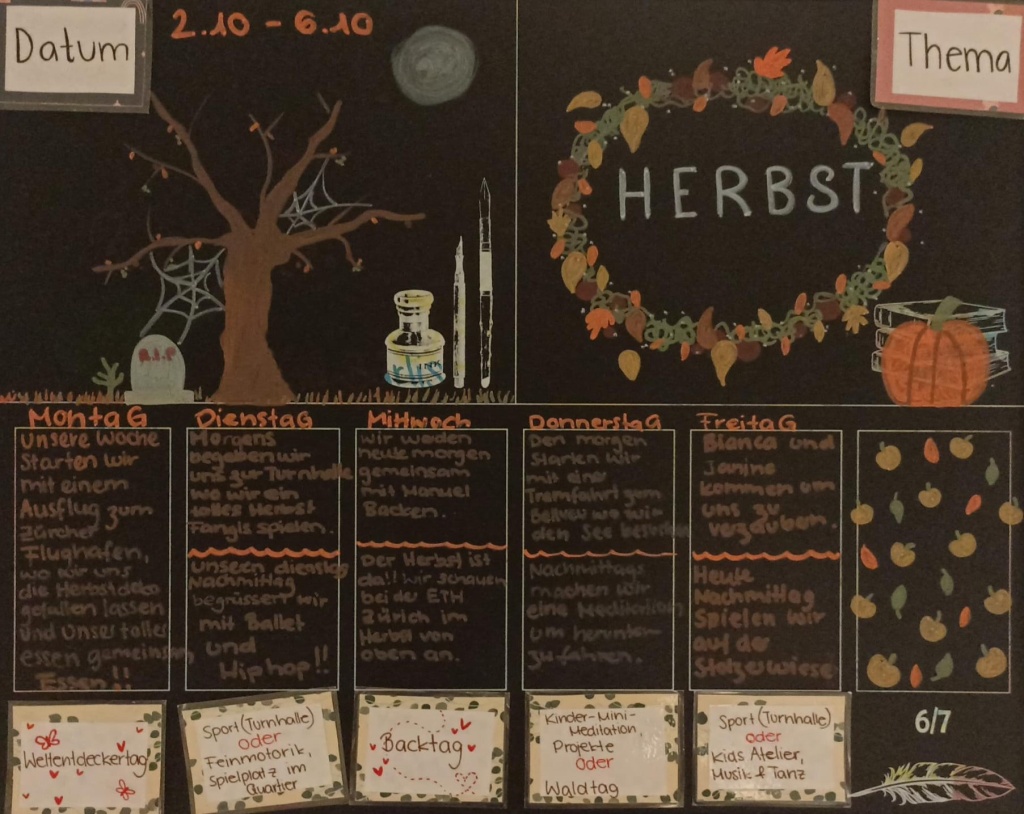 Datum
2.10 - 6.10
Thema
HERBST
R.I.P
Montag
unsere Woche
Starten wir
mit einem
Ausflug zum
Zürcher
Flughafen,
wo wir uns
die Herbstdeko
gefallen lassen
und unser tolles
essen gemeinsam
Essen!!
Dienstag
Morgens
begeben wir
uns zur Turnhalle
wo wir ein
tolles Herbst
Fangis spielen.
unseren dienstag
Nachmittag
begrüssen wir
mit Ballet
und
Hip hop!!
Mittwoch
wir werden
heute morgen
gemeinsam
mit Manuel
Backen.
Der Herbst ist
da!! wir schauen
bei der ETH
Zürich im
Herbst von
oben an.
Donnerstag
Den morgen
starten wir
mit einer
Tramfahrt zum
Bellvue wo wir
den See
Nachmittags
machen wir
eine Meditation
um herunter
zufahren.
Freitag
Bianca und
Janine
kommen um
uns zu
verzaubern.
Heute
Nachmittag
Spielen wir
auf der
Weltentdeckertag
Sport (Turnhalle)
oder
Feinmotorik,
Spielplatz im
Quartier
Backtag
Kinder-Mini-
Meditation,
Projekte
oder
Waldtag
Sport (Turnhalle)
oder
Kids Atelier,
Musik & Tanz
6/7